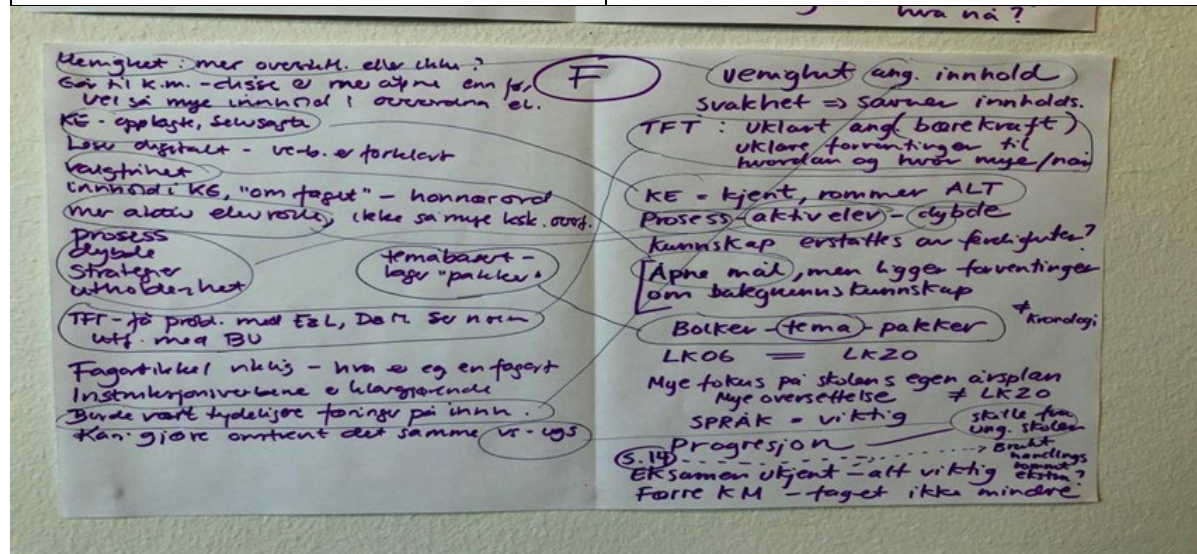 hva nå?
Uenighet: mer overstk. eller ikke?
Går til k.m. - disse e mer åpne enn før,
vel så mye innhold i overordna el.
KE - opplagte, selvsagte
Lese digitalt - ve-b. er forklart
Valgfrihet
innhold i KE, "om faget" - honnørord
mer aktiv elevrolle, ikke så mye ksk. overf.
prosess
dybde
strategier
utholdenhet
temabasert -
lager "pakker"
TFT - få probl. med F&L, D&M. Ser noen
utf. med BU
Fagartikkel viktig - hva e eg en fagart
Instruksjonsverbene e klargjørende
Burde vært tydeligere føringer på innh.
Kan gjøre omtrent det samme vs - ugs
F
uenighet ang. innhold
Svakhet => savner innholds.
TFT: uklart ang. (bærekraft)
uklare forventinger til
hvordan og hvor mye/når
KE - kjent, rommer ALT
Prosess - aktiv elev - dybde
Kunnskap erstattes av ferdigheter?
Åpne mål, men ligger forventinger
om bakgrunnskunnskap
Bolker - tema - pakker
≠ kronologi
LK06 = LK20
Mye fokus på skolens egen årsplan
Mye oversettelse ≠ LK20
SPRÅK = viktig
skille fra
ung. skolen
Progresjon
S.14
Brukt
handlings
rommet
ekstra?
Eksamen ukjent - alt viktig
Færre KM - faget ikke mindre